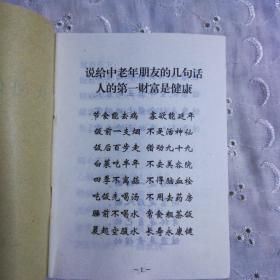 说给中老年朋友的几句话
人的第一财富是健康
节食能去病 寡欲能延年
饭前一支烟 不是活神仙
饭后百步走 借动九十九
白菜吃半年 不去美容院
四季不离蒜 不得脑血栓
吃饭先喝汤 不用去药房
睡前不喝水 常食粗茶饭
晨起空腹水 长寿永康健
—1—